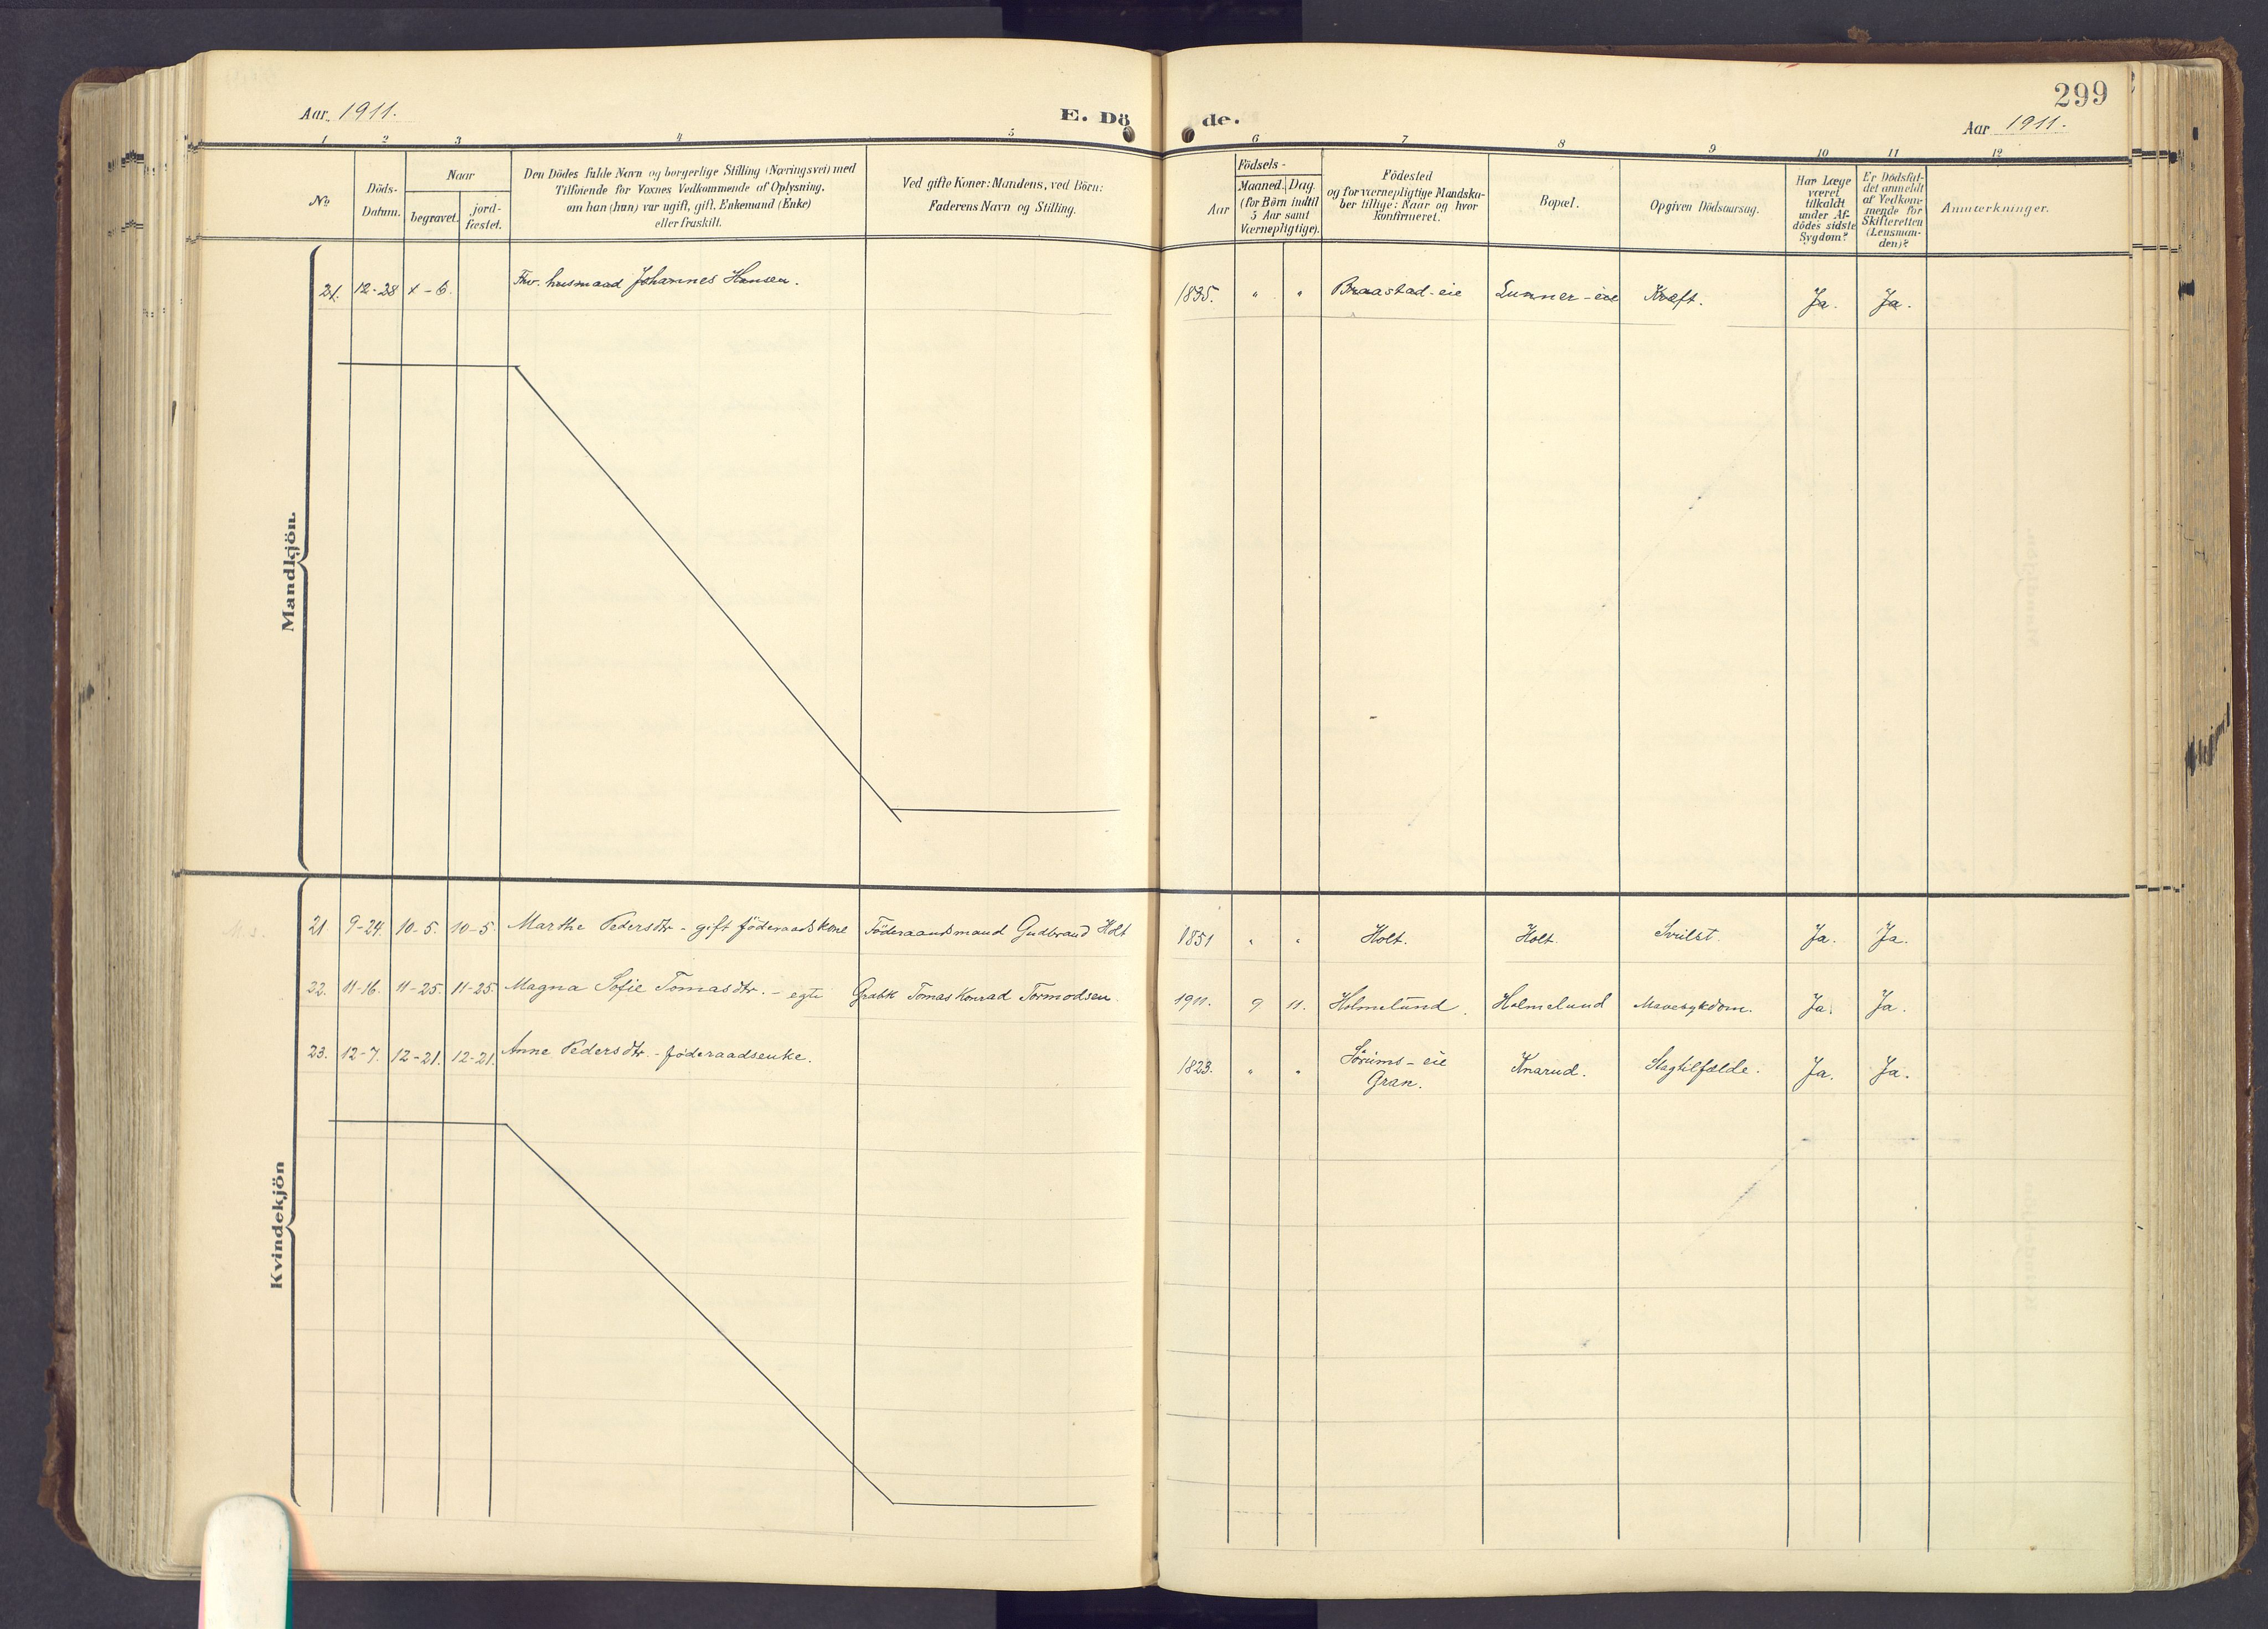 299
Aar 1911.
E. Döde.
Aar 1911.
1 2 3 4 5 6 7 8 9 10 11 12
No
Döds-
Datum.
Naar
begravet.
jord-
fæstet.
Den Dödes fulde Navn og borgerlige Stilling (Næringsvei) med
Tilföiende for Voxnes Vedkommende af Oplysning.
om han (hun) var ugift, gift, Enkemand (Enke)
eller fraskilt.
Ved gifte Koner: Mandens, ved Börn:
Faderens Navn og Stilling.
Födsels-
Aar
Maaned. Dag.
(for Börn indtil
5 Aar samt
Værnepligtige).
Födested
og for værnepligtige Mandska-
ber tillige: Naar og hvor
konfirmeret.
Bopæl.
Opgiven Dödsaarsag.
Har Læge
været
tilkaldt
under Af-
dödes sidste
Sygdom?
Er Dödsfal-
det anmeldt
af Vedkom-
mende for
Skifteretten
(Lensman-
den)?
Anmærkninger.
Mandkjön.
21. 12-28 x-6. Fhv. husmand Johannes Hansen. 1835. " " Braastad-eie Lunner-eie Kræft. Ja. Ja.
Kvindekjön
21 9-24. 10-5. 10-5. Marthe Pedersdtr - gift föderaadskone Föderaadsmand Gudbrand Holt 1851 " " Holt. Holt. Ja. Ja.
22. 11-16. 11-25. 11-25. Magna Sofie Tomasdtr. - egte Grdbk Tomas Konrad Tormodsen. 1911. 9 11. Holmelund. Holmelund Mavesykdom. Ja. Ja.
23. 12-7. 12-21. 12-21. Anne Pedersdtr. - föderaadsenke. 1823. " " Sörums-eie
Gran. Knarud. Slagtilfælde. Ja. Ja.